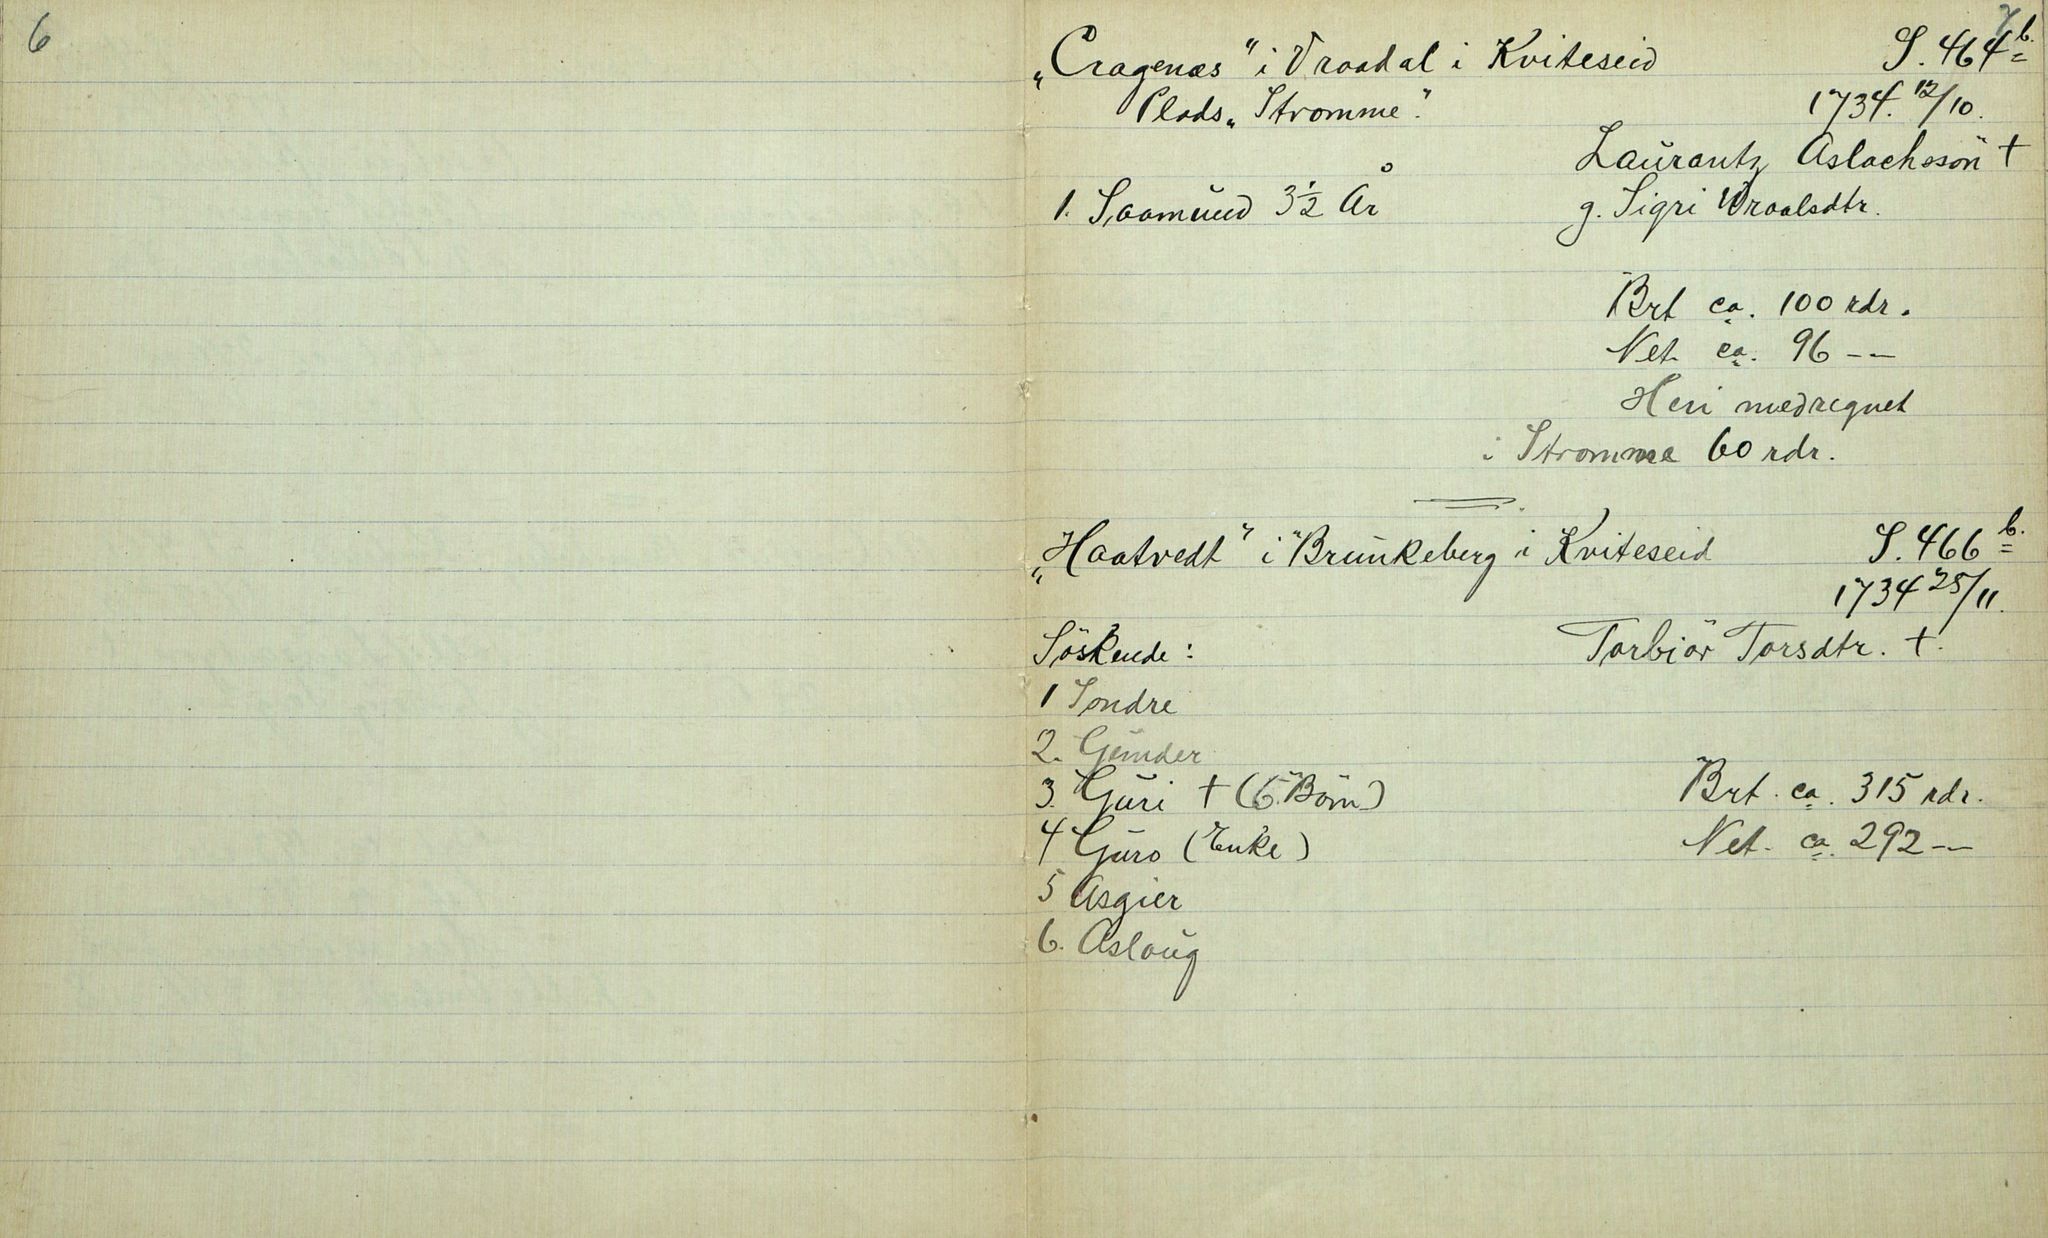 6
7
„Cragenæs" i Vraadal i Kviteseid S. 464 b.
Plads „Stromme". 1734. 12/10.
Laurantz Aslachssön †
1. Saamund 3½ År g. Sigri Wraalsdtr.
Brt ca. 100 rdr.
Net. ca. 96 --
Heri medregnet
i Stromme 60 rdr.
„Haatvedt" i Brunkeberg i Kviteseid S. 466 b.
1734 25/11.
Söskende: Torbiör Torsdtr. †.
1 Sondre
2. Gunder
3. Guri † (6. Börn) Brt. ca. 315 rdr.
4 Guro (Enke) Net. ca. 292 --
5 Asgier
6. Aslaug